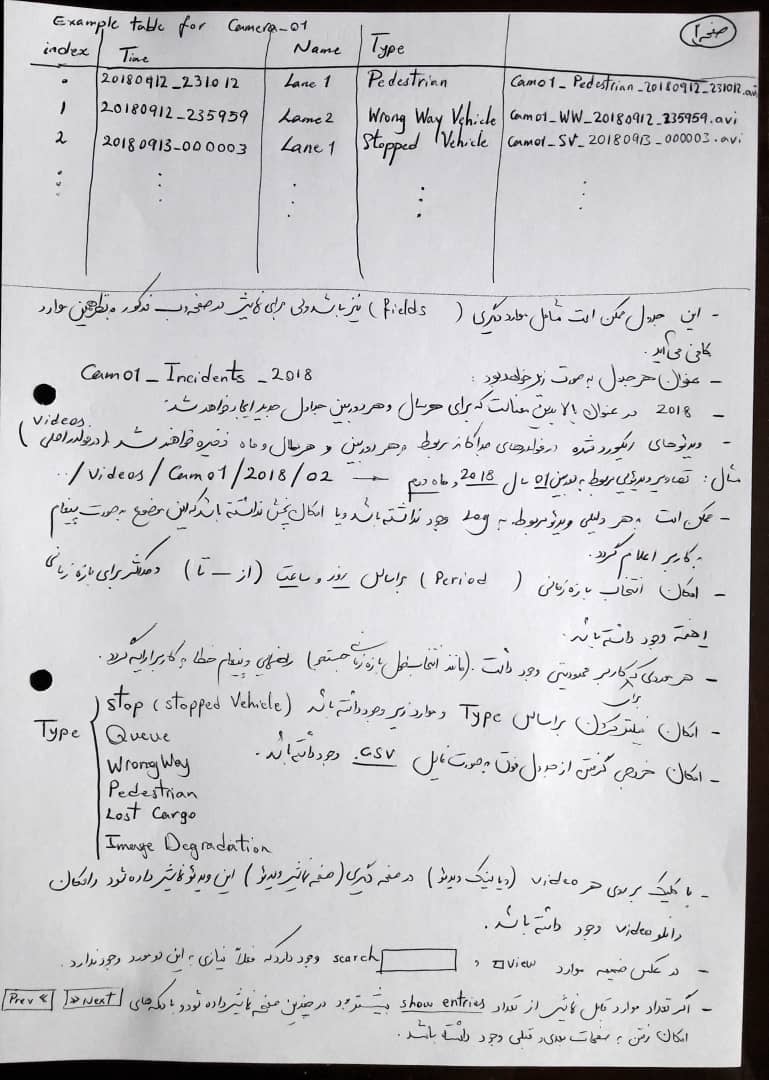 صفحه ۱
Example table for Camera_01
index Time Name Type
0 20180912_231012 Lane 1 Pedestrian Cam01_Pedestrian_20180912_231012.avi
1 20180912_235959 Lane2 Wrong Way Vehicle Cam01_WW_20180912_235959.avi
2 20180913_000003 Lane 1 Stopped Vehicle Cam01_SV_20180913_000003.avi
- این جدول ممکن است شامل موارد دیگری (fields) نیز باشد ولی برای نمایش در صفحه وب مذکور به نظر همین موارد
کافی می‌آید.
- عنوان هر جدول به صورت زیر خواهد بود:
Cam01_Incidents_2018
- 2018 در عنوان بالا بدین معناست که برای هر سال و هر دوربین جداول جدید ایجاد خواهد شد.
- ویدئوهای رکورد شده در فولدرهای جداگانه مربوط به هر دوربین و هر سال و ماه ذخیره خواهند شد (در فولدر اصلی Videos)
مثال: تصاویر ویدئویی مربوط به دوربین 01 سال 2018 و ماه دوم → ../Videos/Cam01/2018/02
- ممکن است به هر دلیلی ویدئو مربوطه به Log وجود نداشته باشد و یا امکان پخش نداشته باشد که این موضوع به صورت پیغام
به کاربر اعلام گردد.
- امکان انتخاب بازه زمانی (Period) براساس روز و ساعت (از – تا) و حداکثر برای بازه زمانی
۱ هفته وجود داشته باشد.
- هر موردی که برای کاربر محدودیتی وجود داشت. (مانند انتخاب طول بازه زمانی جستجو) راهنمایی و پیغام خطا به کاربر ارایه گردد.
- امکان فیلتر کردن براساس Type و موارد زیر وجود داشته باشد
Type
stop (stopped Vehicle)
Queue
WrongWay
Pedestrian
Lost Cargo
Image Degradation
- امکان خروجی گرفتن از جدول فوق به صورت فایل .CSV وجود داشته باشد.
- با کلیک بر روی هر video (و یا لینک ویدئو) در صفحه دیگری (صفحه نمایش ویدئو) این ویدئو نمایش داده شود و امکان
دانلود video وجود داشته باشد.
- در عکس ضمیمه موارد view و search وجود دارد که فعلاً نیازی به این دو مورد وجود ندارد.
- اگر تعداد موارد قابل نمایش از تعداد show entries بیشتر بود در چندین صفحه نمایش داده شود و با دکمه‌های Next » « Prev
امکان رفتن به صفحات بعدی و قبلی وجود داشته باشد.